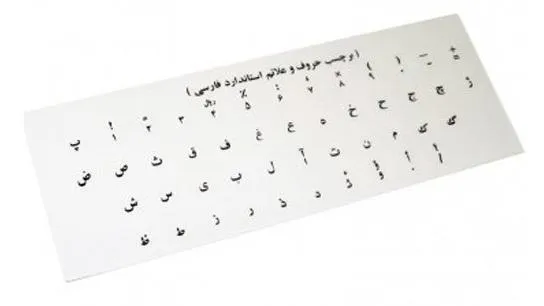 ( برچسب حروف و علائم استاندارد فارسی )
! ریال % : × ( ) +
پ ۱ ۲ ۳ ۴ ۵ ۶ ۷ ۸ ۹ ۰ - =
ض ص ث ق ف غ ع ه خ ح ج چ ژ
ش س ی ب ل آ ت ن م ک گ
ظ ط ز ر ذ د